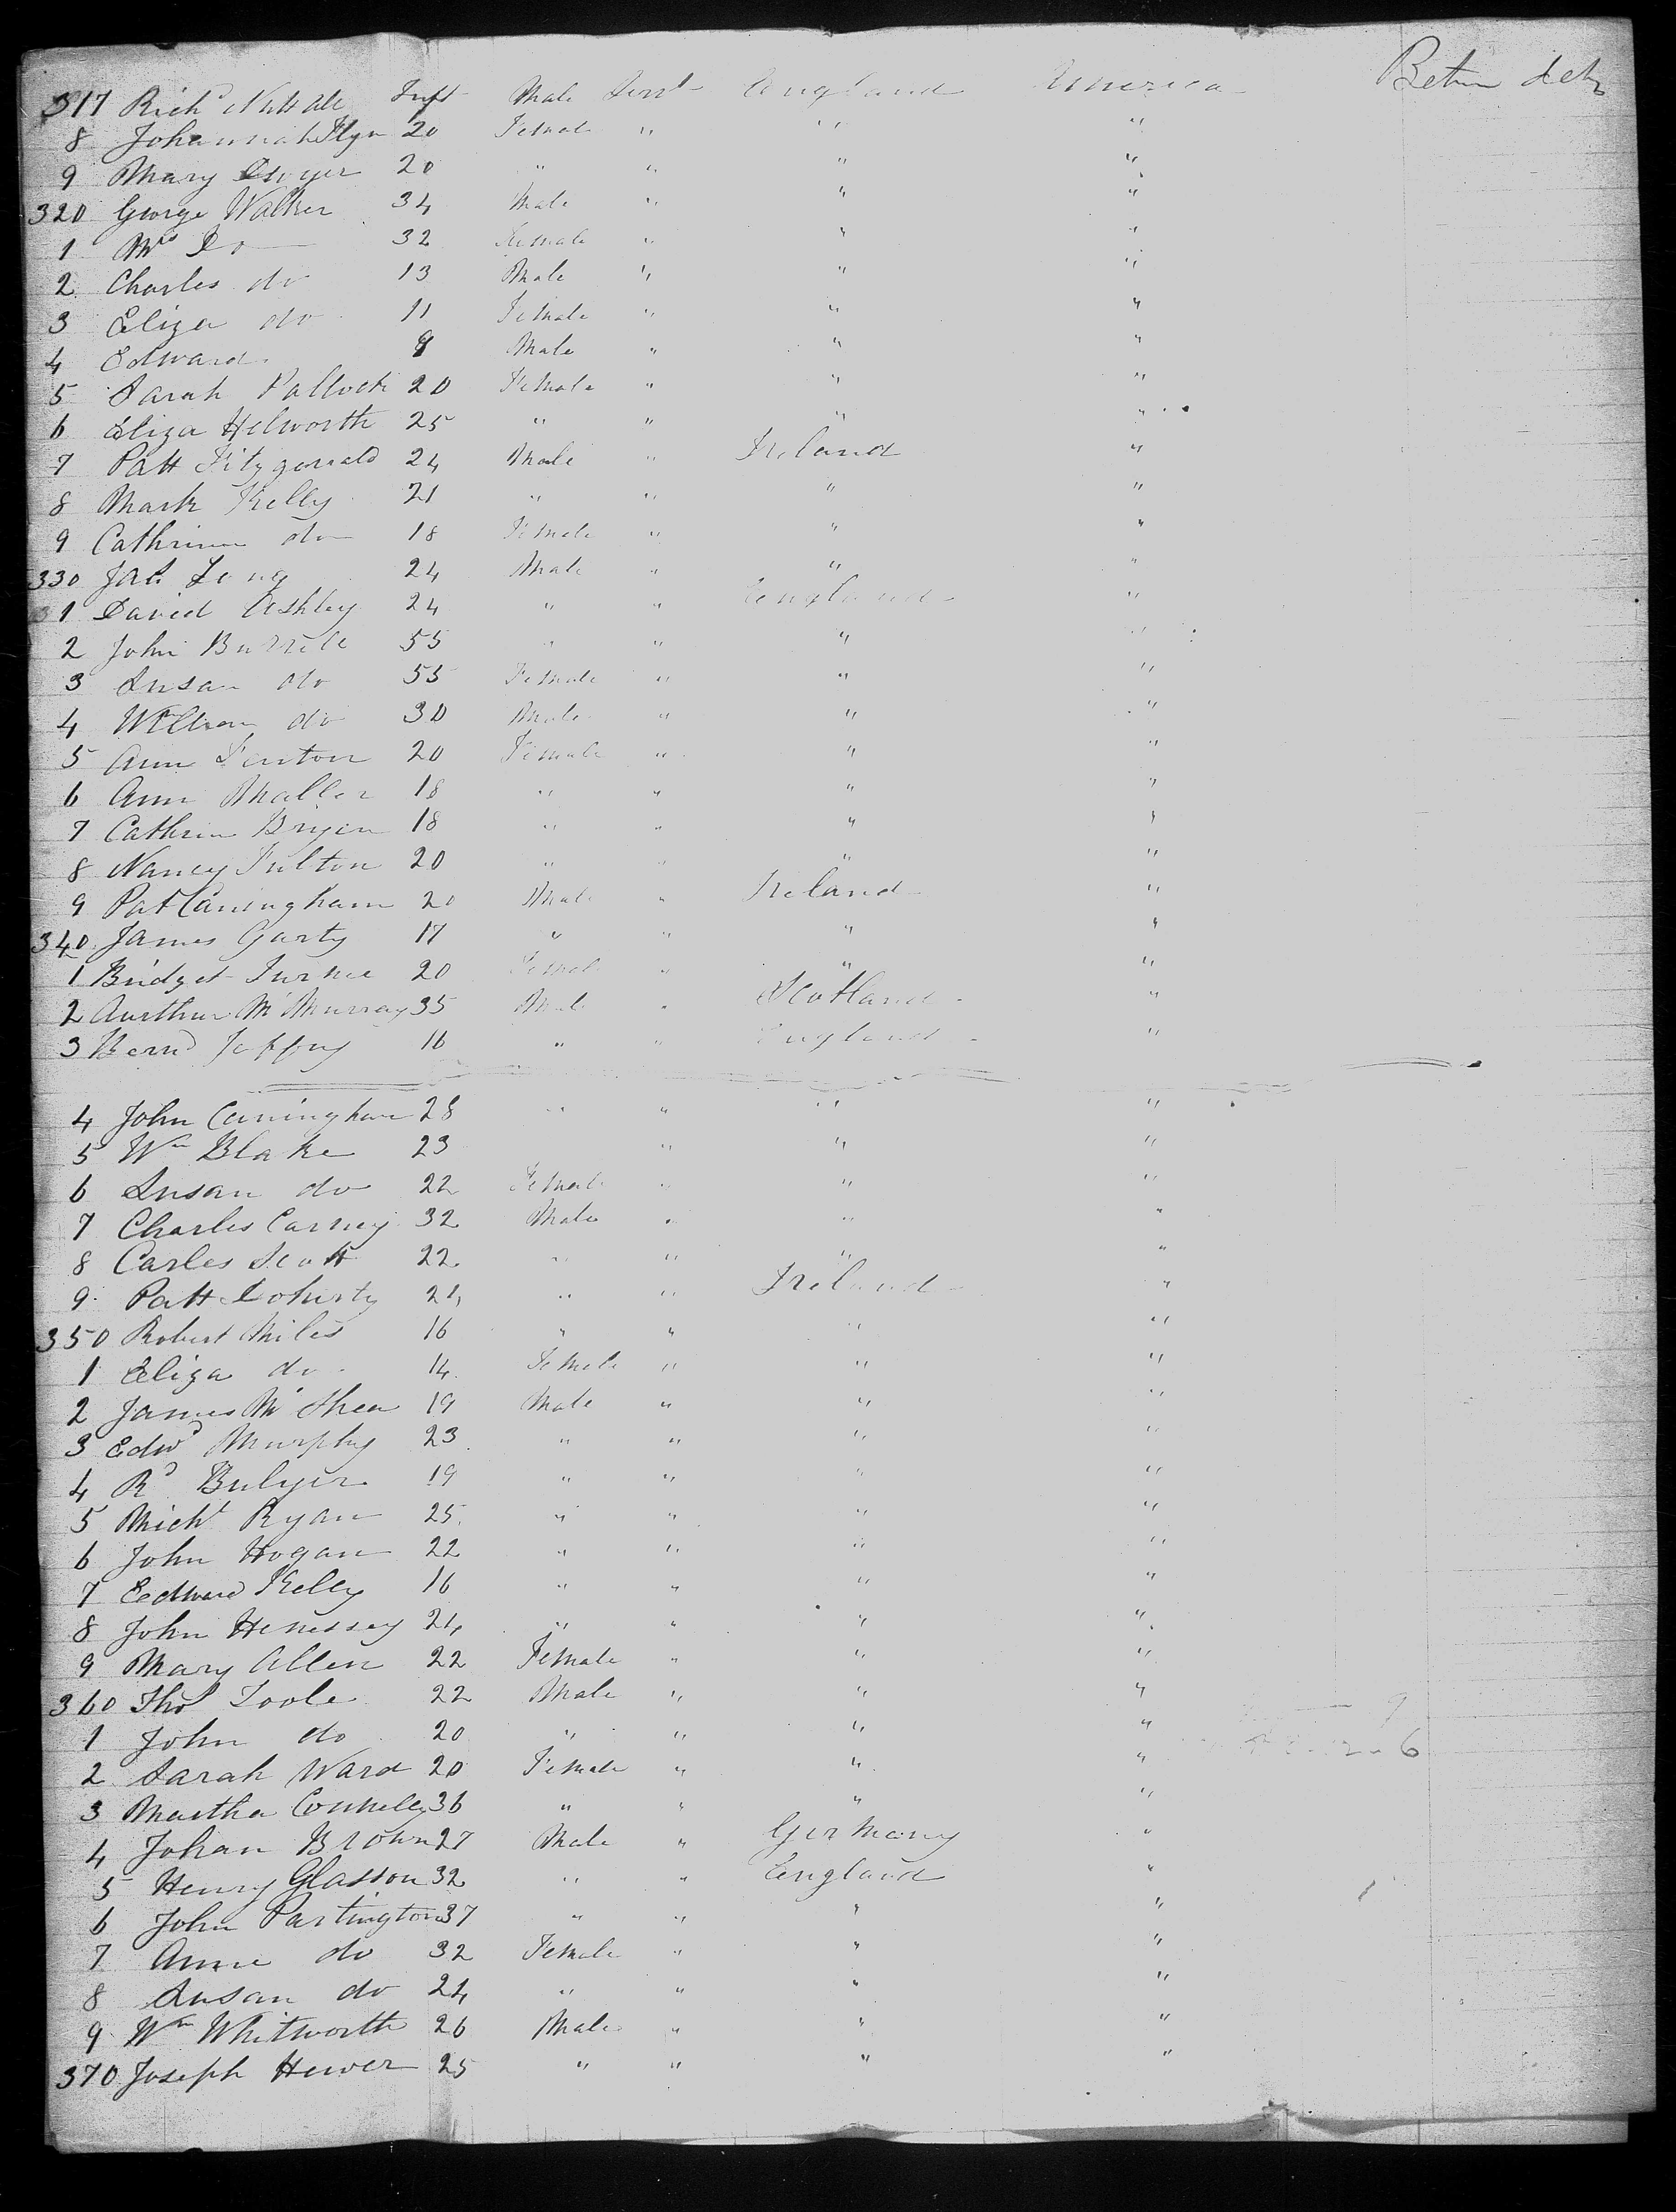 317 Richd Nuttall Inft Male Servt England America Betwn decks
8 Johannah Flyn 20 Female " " "
9 Mary Dwyer 20 " " " "
320 George Walker 34 Male " " "
1 Mrs Do 32 Female " " "
2 Charles do 13 Male " " "
3 Eliza do 11 Female " " "
4 Edward 9 Male " " "
5 Sarah Pallock 20 Female " " "
6 Eliza Helworth 25 " " " "
7 Patt Fitzgerrald 24 Male " Ireland "
8 Mark Kelly 21 " " " "
9 Cathrine do 18 Female " " "
330 Jas Long 24 Male " " "
31 David Ashley 24 " " England "
2 John Burrell 55 " " " "
3 Susan do 55 Female " " "
4 William do 30 Male " " "
5 Ann Fenton 20 Female " " "
6 Ann Maller 18 " " " "
7 Cathrin Bryan 18 " " " "
8 Nancy Fulton 20 " " " "
9 Pat Caningham 20 Male " Ireland "
340 James Garty 17 " " " "
1 Bridget Furnee 20 Female " " "
2 Aurthur McMurray 35 Male " Scotland "
3 Bernd Jaffrey 16 " " England "
4 John Caningham 28 " " " "
5 Wm Blake 23 " " "
6 Susan do 22 Female " " "
7 Charles Carney 32 Male " " "
8 Carles Scott 22 " " " "
9 Patt Doherty 24 " " Ireland "
350 Robert Miles 16 " " " "
1 Eliza do 14 Female " " "
2 James McShea 19 Male " " "
3 Edwd Murphy 23 " " " "
4 Rd Bulger 19 " " " "
5 Michl Ryan 25 " " " "
6 John Hogan 22 " " " "
7 Eedward Kelly 16 " " " "
8 John Henessey 24 " " " "
9 Mary Allen 22 Female " " "
360 Thos Toole 22 Male " " "
1 John do 20 " " " "
2 Sarah Ward 20 Female " " "
3 Martha Connelly 36 " " " "
4 Johan Brown 27 Male " Germany "
5 Henry Glasson 32 " " England "
6 John Partington 37 " " " "
7 Anne do 32 Female " " "
8 Susan do 24 " " " "
9 Wm Whitworth 26 Male " " "
370 Joseph Hewer 25 " " " "